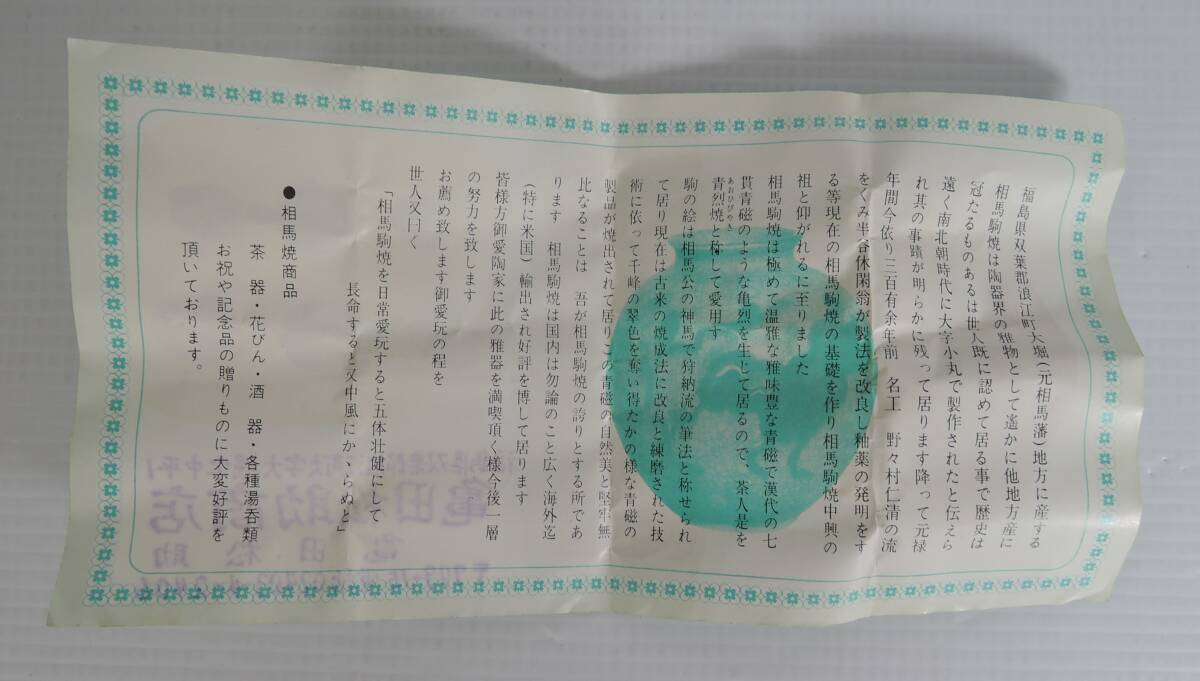 福島県双葉郡浪江町大堀(元相馬藩)地方に産する
相馬駒焼は陶器界の雅物として遙かに他地方産に
冠たるものあるは世人既に認めて居る事で歴史は
遠く南北朝時代に大字小丸で製作されたと伝えら
れ其の事蹟が明らかに残って居ります降って元禄
年間今依り三百有余年前 名工 野々村仁清の流
をくみ半谷休閑翁が製法を改良し釉薬の発明をす
る等現在の相馬駒焼の基礎を作り相馬駒焼中興の
祖と仰がれるに至りました
相馬駒焼は極めて温雅な雅味豊な青磁で漢代の七
貫青磁のような亀烈を生じて居るので、茶人是を
青烈焼と稱して愛用す
あおひびやき
駒の絵は相馬公の神馬で狩納流の筆法と称せられ
て居り現在は古来の焼成法に改良と練磨された技
術に依って千峰の翠色を奪い得たかの様な青磁の
製品が焼出されて居りこの青磁の自然美と堅牢無
比なることは 吾が相馬駒焼の誇りとする所であ
ります 相馬駒焼は国内は勿論のこと広く海外迄
(特に米国)輸出され好評を博して居ります
皆様方御愛陶家に此の雅器を満喫頂く様今後一層
の努力を致します
お薦め致します御愛玩の程を
世人又曰く
「相馬駒焼を日常愛玩すると五体壮健にして
長命すると又中風にかゝらぬと」
●相馬焼商品
茶 器・花びん・酒 器・各種湯呑類
お祝や記念品の贈りものに大変好評を
頂いております。
亀田
店
亀田松助